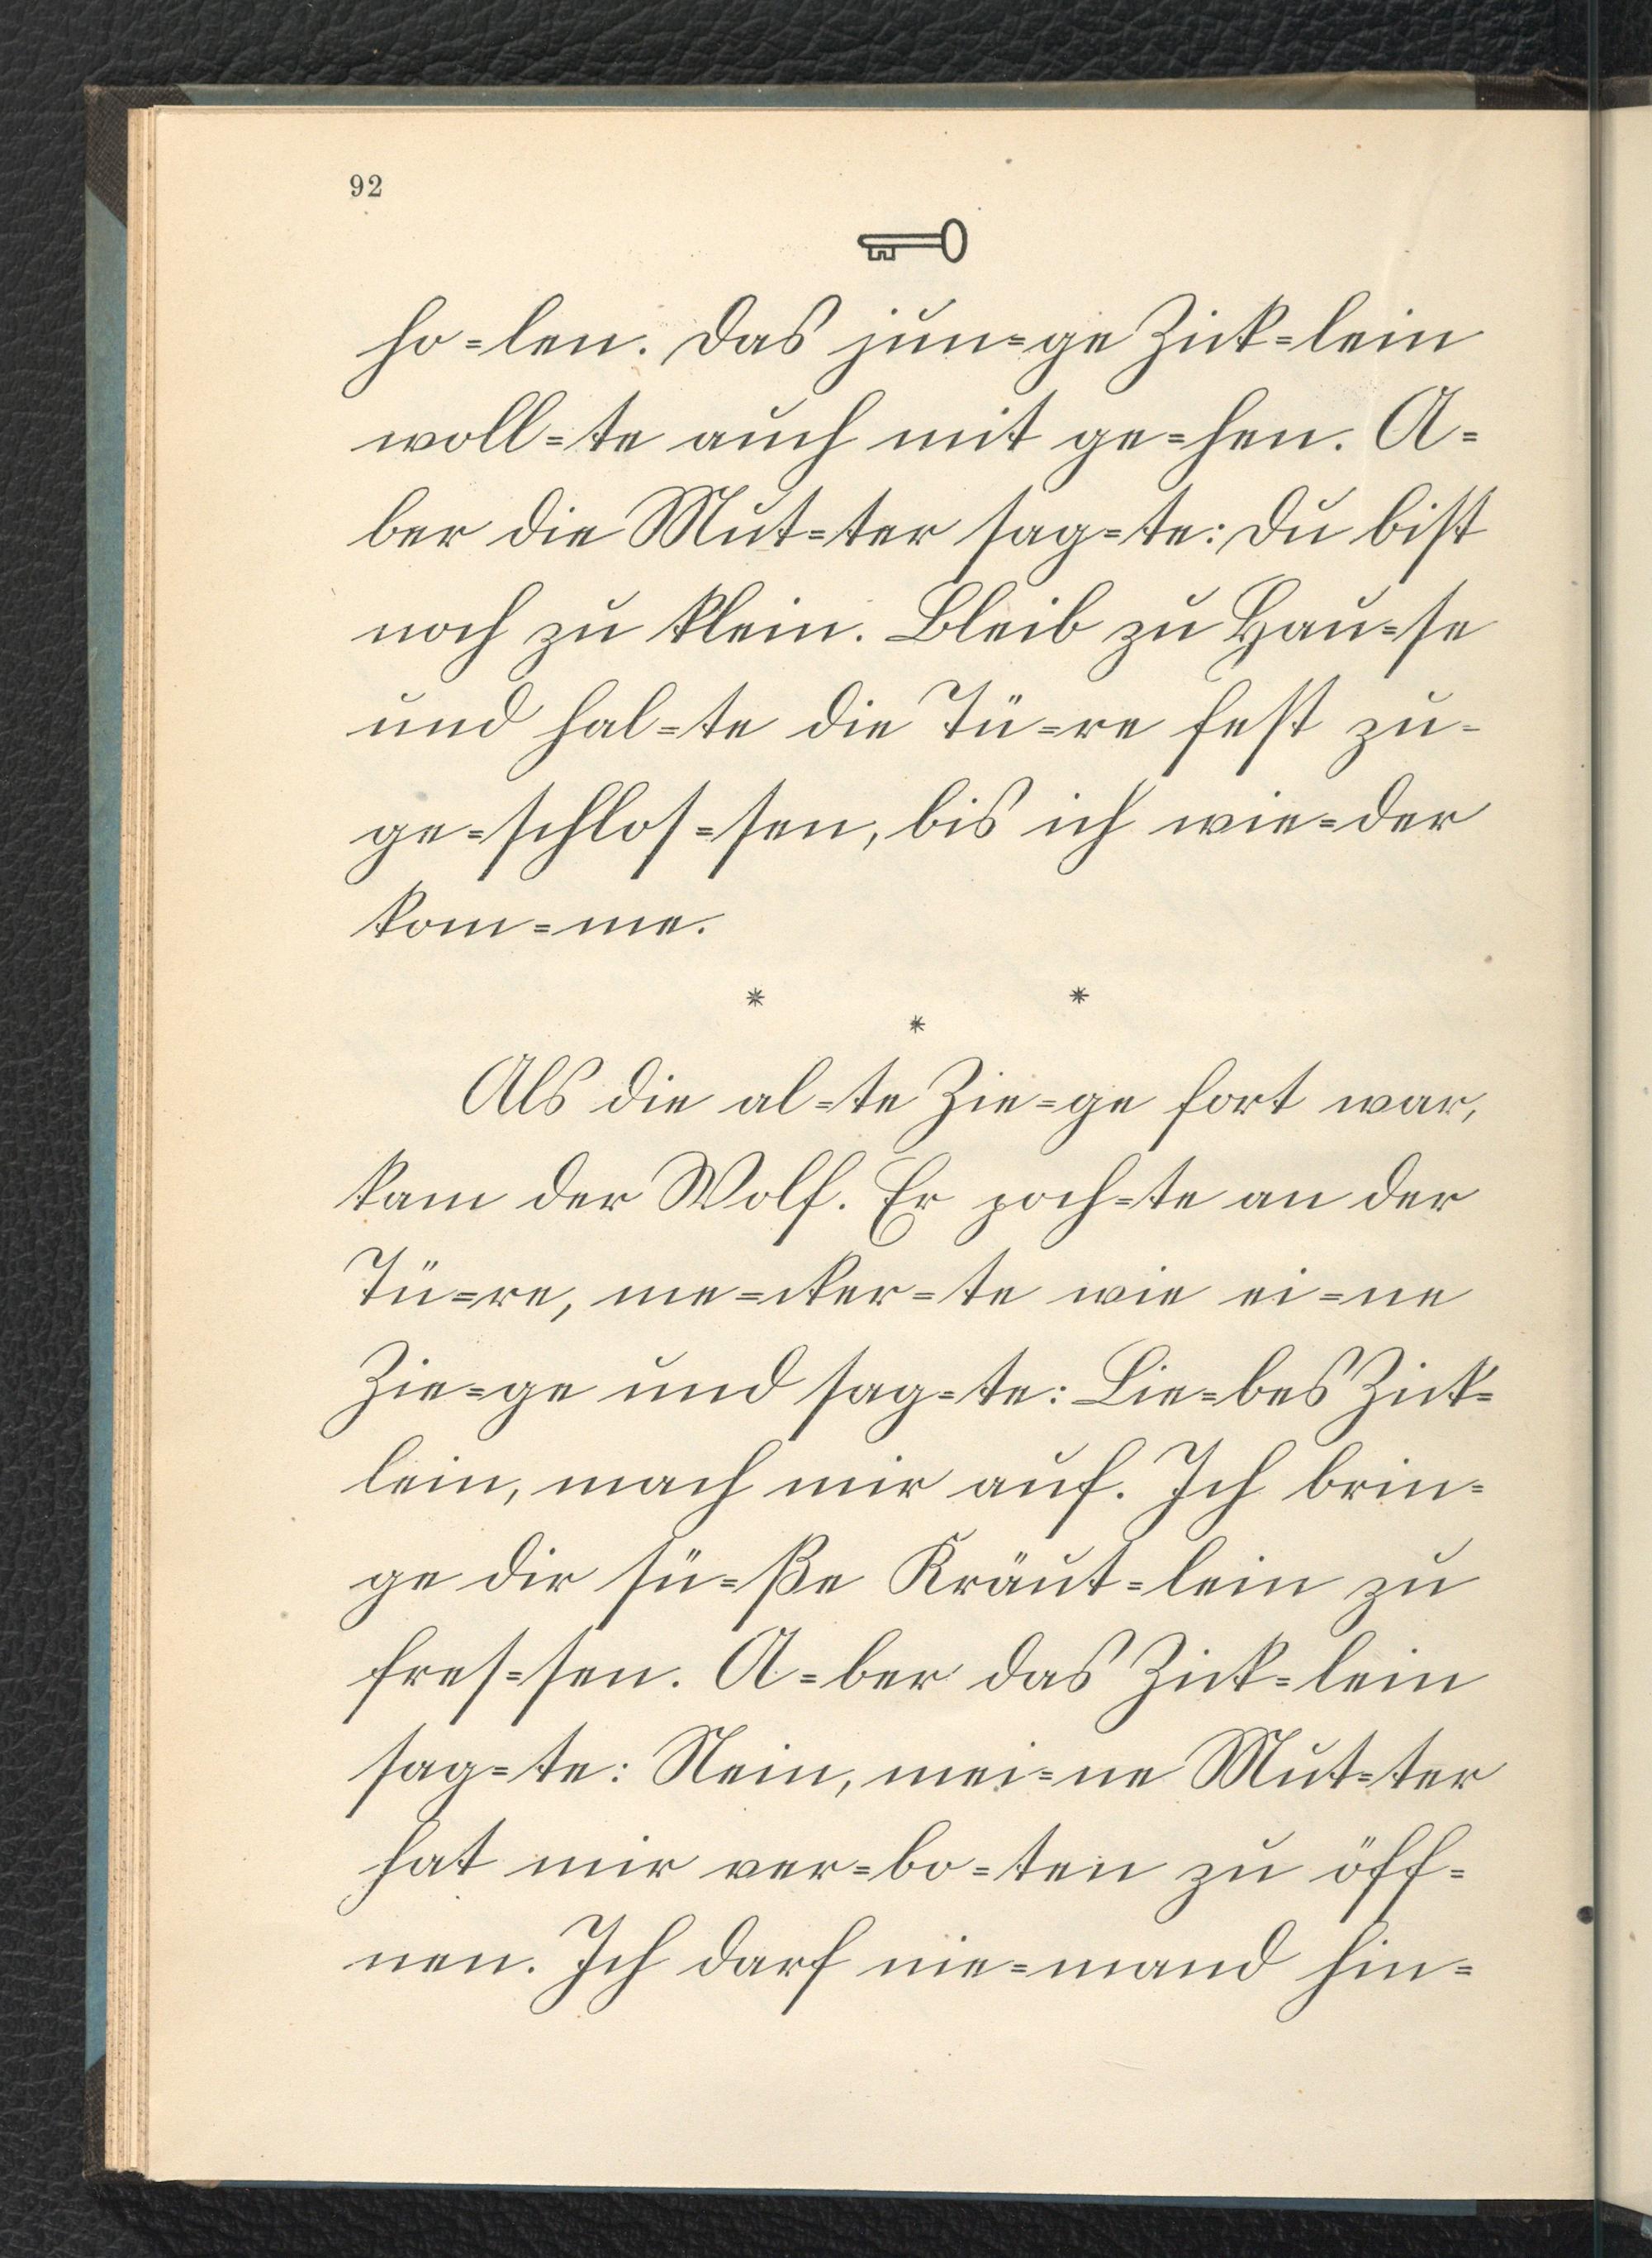 92
ho-len. Das jun-ge Zick-lein
woll-te auch mit ge-hen. A-
ber die Mut-ter sag-te: Du bist
noch zu klein. Bleib zu Hau-se
und hal-te die Tü-re fest zu-
ge-schlos-sen, bis ich wie-der
kom-me.
* * *
Als die al-te Zie-ge fort war,
kam der Wolf. Er poch-te an der
Tü-re, me-cker-te wie ei-ne
Zie-ge und sag-te: Lie-bes Zick-
lein, mach mir auf. Ich brin-
ge dir sü-ße Kräut-lein zu
fres-sen. A-ber das Zick-lein
sag-te: Nein, mei-ne Mut-ter
hat mir ver-bo-ten zu öff-
nen. Ich darf nie-mand hin-